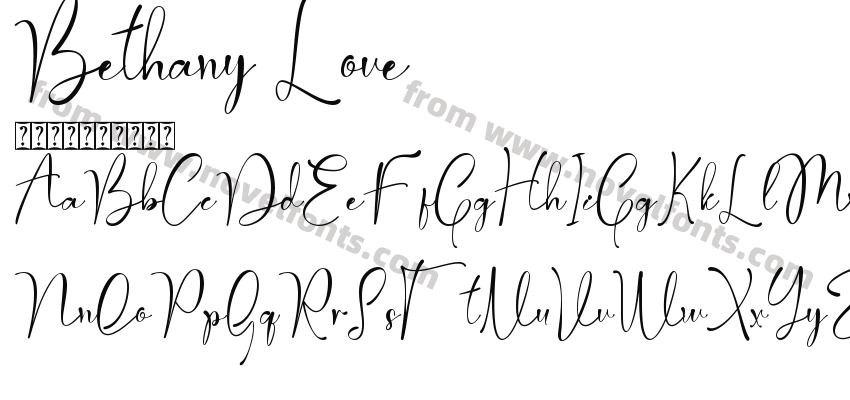 Bethany Love
AaBbCcDdEeFfGgHhIiJjKkLlMm
NnOoPpQqRrSsTtUuVvWwXxYyZ
from www.novelfonts.com
from www.novelfonts.com